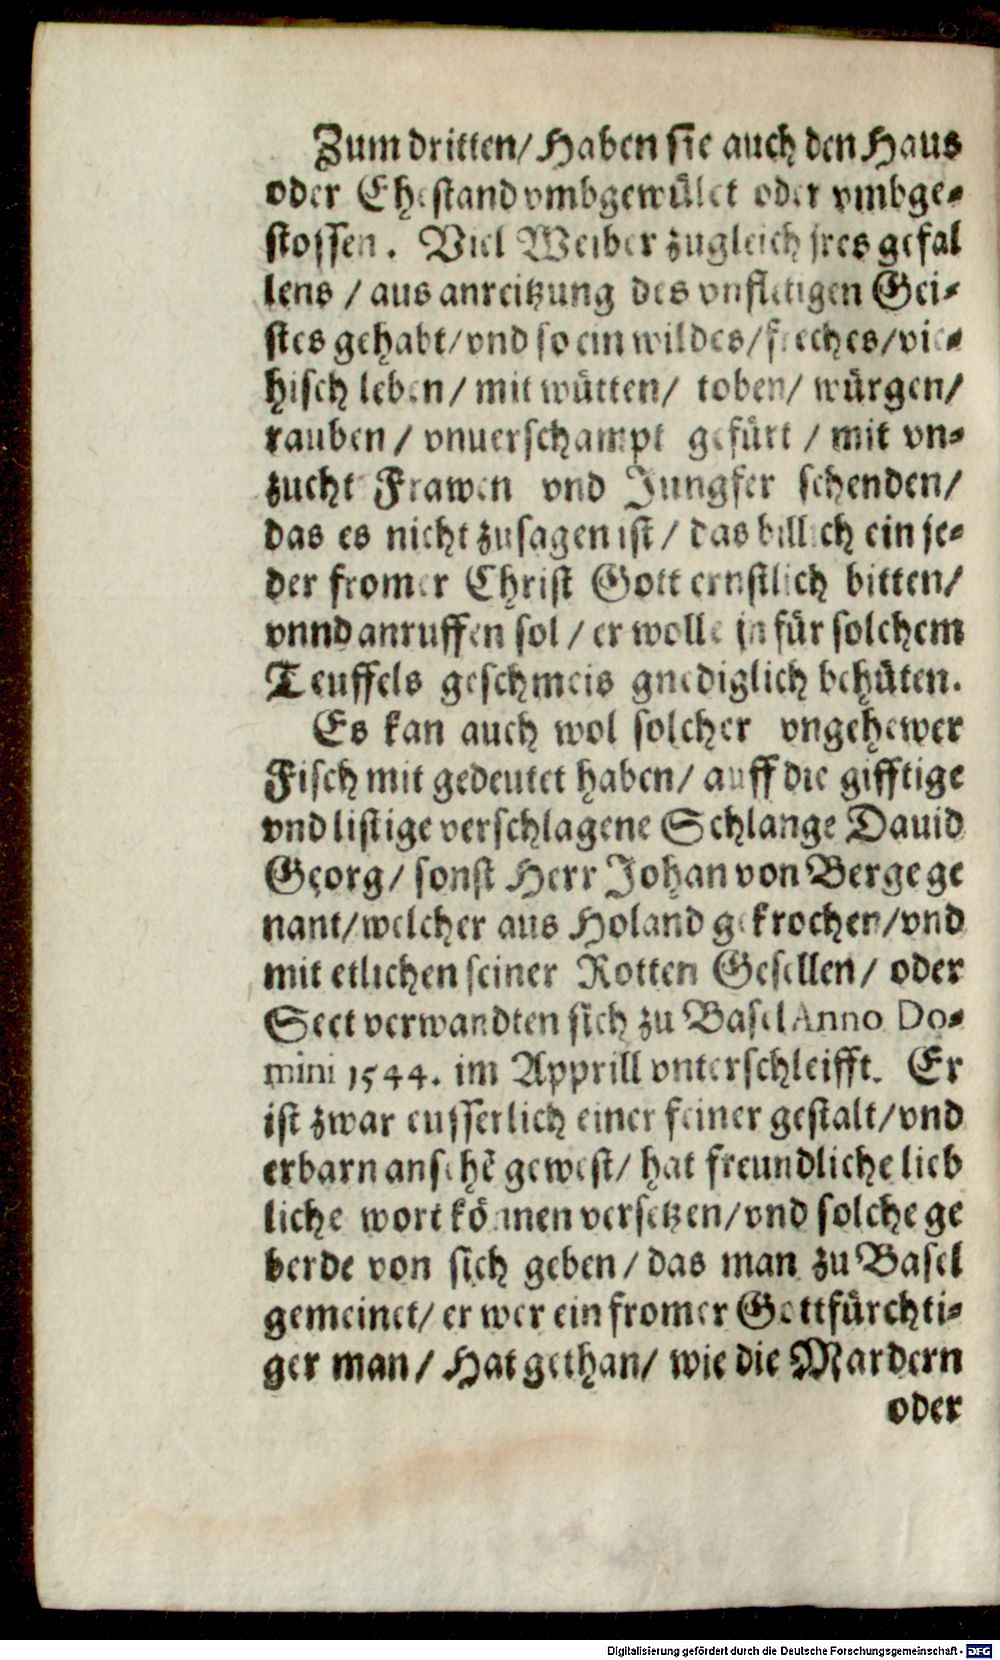 Zum dritten/ Haben sie auch den Haus
oder Ehestand vmbgewület oder vmbge-
stossen. Viel Weiber zugleich jres gefal
lens / aus anreitzung des vnfletigen Gei-
stes gehabt/ vnd so ein wildes/ freches/ vie-
hisch leben/ mit wütten/ toben/ würgen/
rauben / vnuerschampt gefürt / mit vn-
zucht Frawen vnd Jungfer schenden/
das es nicht zusagen ist / das billich ein je-
der fromer Christ Gott ernstlich bitten/
vnnd anruffen sol / er wolle jn für solchem
Teuffels geschmeis gnediglich behüten.
Es kan auch wol solcher vngehewer
Fisch mit gedeutet haben/ auff die gifftige
vnd listige verschlagene Schlange Dauid
Georg/ sonst Herr Johan von Berge ge
nant/ welcher aus Holand gekrochen/ vnd
mit etlichen seiner Rotten Gesellen/ oder
Sect verwandten sich zu Basel Anno Do-
mini 1544. im Apprill vnterschleifft. Er
ist zwar eusserlich einer feiner gestalt/ vnd
erbarn ansehẽ gewest/ hat freundliche lieb
liche wort können versetzen/ vnd solche ge
berde von sich geben/ das man zu Basel
gemeinet/ er wer ein fromer Gottfürchti-
ger man/ Hat gethan/ wie die Mardern
oder
Digitalisierung gefördert durch die Deutsche Forschungsgemeinschaft - DFG